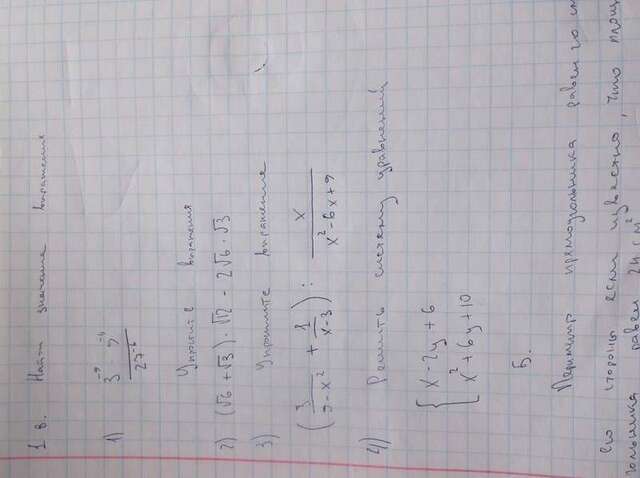 1 в. Найти значение выражения
1) 3⁻⁹ 9⁻⁴ / 27⁻⁶
Упростите выражения
2) (√6 + √3) · √12 - 2√6 · √3
3) Упростите выражение
(3 / (9 - x²) + 1 / (x - 3)) : x / (x² - 6x + 9)
4) Решить систему уравнений
{ x - 2y + 6
x² + 6y + 10
5.
Периметр прямоугольника равен 20 см
его стороны если известно, что площ
равен 24 см²